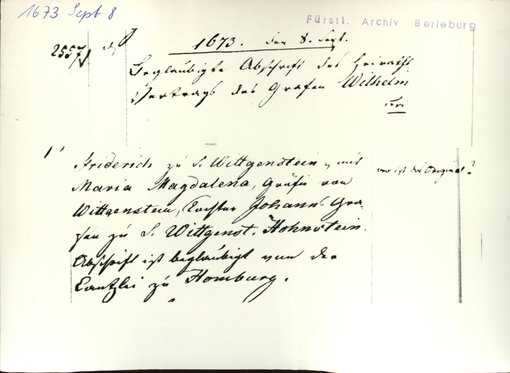 1673 Sept 8
Fürstl. Archiv Berleburg
2557
1673. den 8. Sept.
Beglaubigte Abschrift des Heiraths
Vertrags des Grafen Wilhelm
Fri
Friderich zu S. Wittgenstein, mit
Maria Magdalena, Gräfin von
Wittgenstein, Tochter Johann Gra
fen zu S. Wittgenst. Hohnstein.
Abschrift ist beglaubigt von der
Canzlei zu Homburg.
wo ist das Original?